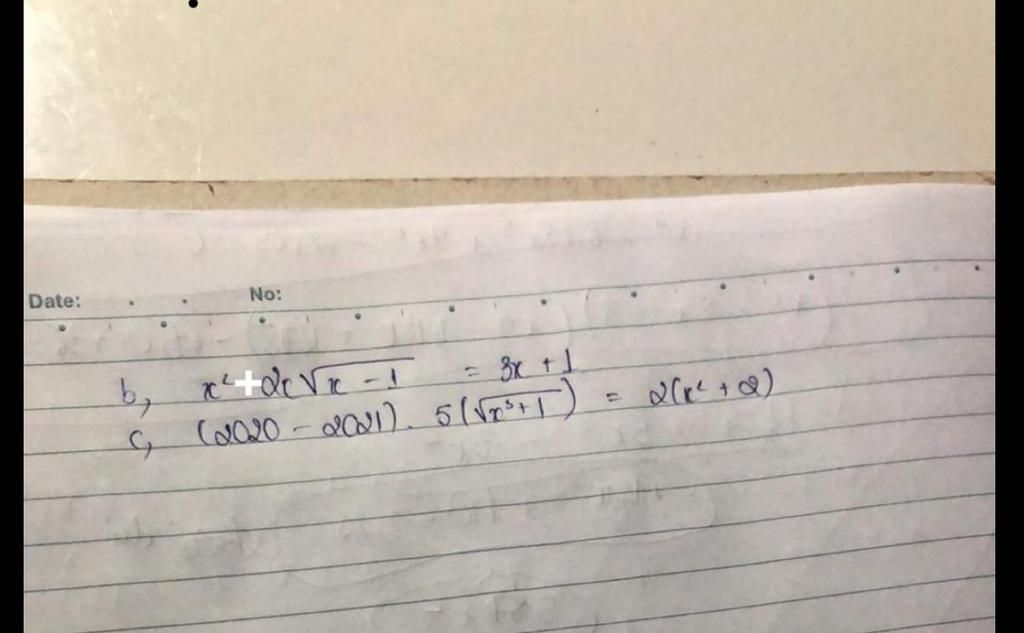 Date: No:
b, x² + 2x√(x - 1) = 3x + 1
c, (2020 - 2021). 5(√(x³ + 1)) = 2(x² + 2)